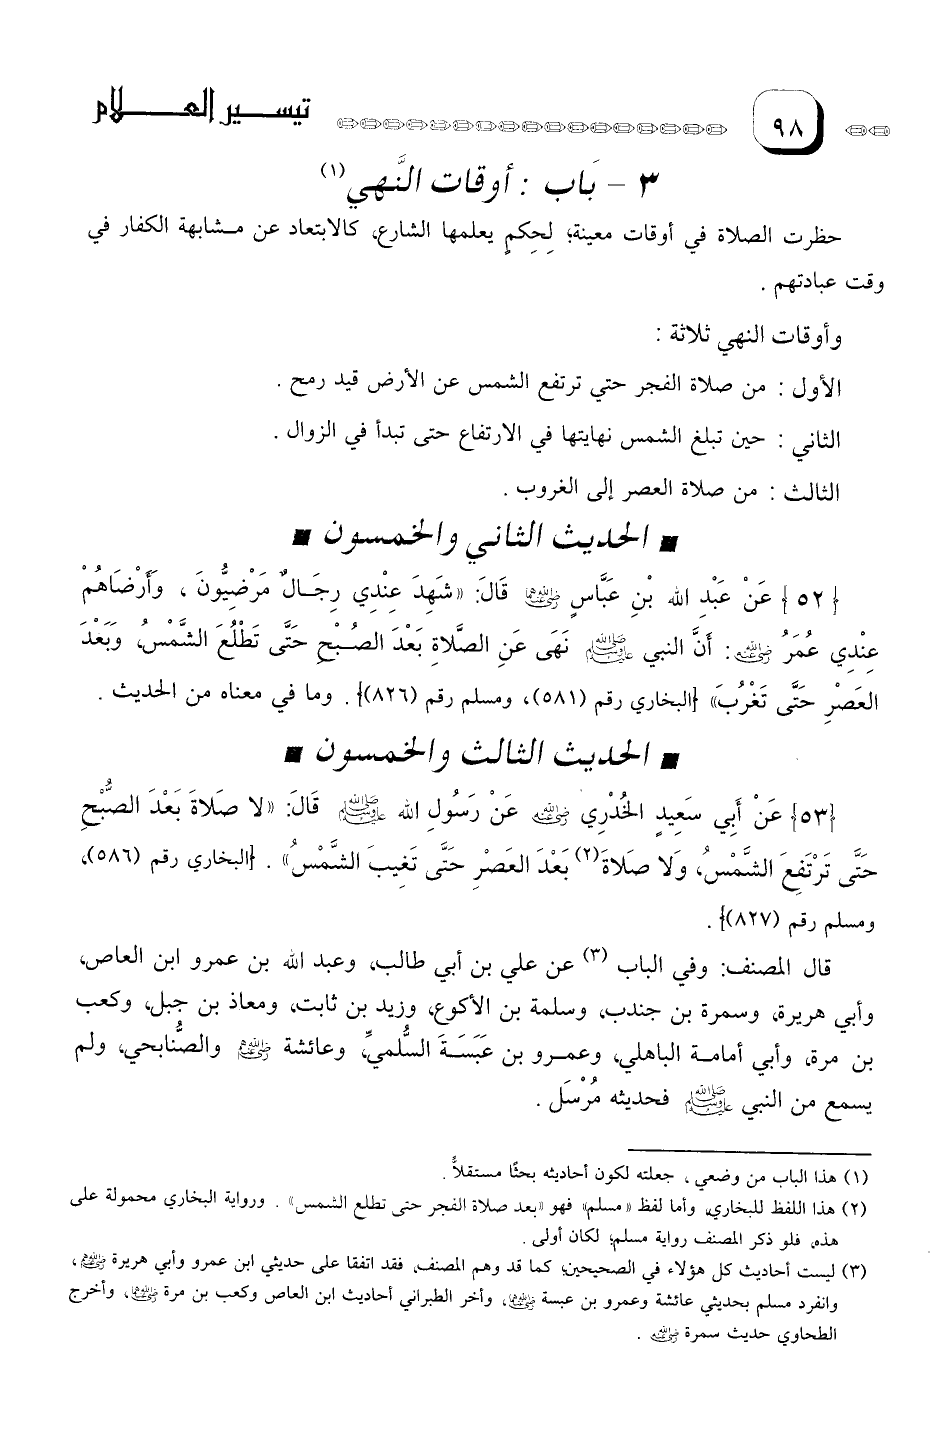 ٩٨ تيسير العلام
٣ - بَاب : أوقات النَّهي (١)
حظرت الصلاة في أوقات معينة؛ لِحِكمٍ يعلمها الشارع، كالابتعاد عن مشابهة الكفار في
وقت عبادتهم .
وأوقات النهي ثلاثة :
الأول : من صلاة الفجر حتي ترتفع الشمس عن الأرض قيد رمح .
الثاني : حين تبلغ الشمس نهايتها في الارتفاع حتى تبدأ في الزوال .
الثالث : من صلاة العصر إلى الغروب .
■ الحديث الثاني والخمسون ■
{٥٢} عَنْ عَبْدِ الله بْنِ عَبَّاسٍ رضي الله عنهما قَالَ: «شَهِدَ عِنْدِي رِجَالٌ مَرْضِيُّونَ ، وَأَرْضَاهُمْ
عِنْدِي عُمَرُ رضي الله عنه : أَنَّ النبي ﷺ نَهَى عَنِ الصَّلاةِ بَعْدَ الصُبْحِ حَتَّى تَطْلُعَ الشَّمْسُ، وَبَعْدَ
العَصْرِ حَتَّى تَغْرُبَ» {البخاري رقم (٥٨١)، ومسلم رقم (٨٢٦)} . وما في معناه من الحديث .
■ الحديث الثالث والخمسون ■
{٥٣} عَنْ أَبي سَعِيدٍ الخُدْرِي رضي الله عنه عَنْ رَسُولِ الله ﷺ قَالَ: «لا صَلاةَ بَعْدَ الصُّبْحِ
حَتَّى تَرْتَفِعَ الشَّمْسُ، وَلا صَلاةَ(٢) بَعْدَ العَصْرِ حَتَّى تَغِيبَ الشَّمْسُ» . {البخاري رقم (٥٨٦)،
ومسلم رقم (٨٢٧)} .
قال المصنف: وفي الباب (٣) عن علي بن أبي طالب، وعبد الله بن عمرو ابن العاص،
وأبي هريرة، وسمرة بن جندب، وسلمة بن الأكوع، وزيد بن ثابت، ومعاذ بن جبل، وكعب
بن مرة، وأبي أمامة الباهلي، وعمرو بن عَبَسَةَ السُّلميِّ، وعائشة رضي الله عنهم والصُّنابحي، ولم
يسمع من النبي ﷺ فحديثه مُرْسَل .
(١) هذا الباب من وضعي ، جعلته لكون أحاديثه بحثًا مستقلاًّ .
(٢) هذا اللفظ للبخاري، وأما لفظ «مسلم» فهو «بعد صلاة الفجر حتى تطلع الشمس» . ورواية البخاري محمولة على
هذه، فلو ذكر المصنف رواية مسلم؛ لكان أولى .
(٣) ليست أحاديث كل هؤلاء في الصحيحين، كما قد وهم المصنف، فقد اتفقا على حديثي ابن عمرو وأبي هريرة رضي الله عنهما ،
وانفرد مسلم بحديثي عائشة وعمرو بن عبسة رضي الله عنهما، وأخر الطبراني أحاديث ابن العاص وكعب بن مرة رضي الله عنهما، وأخرج
الطحاوي حديث سمرة رضي الله عنه .